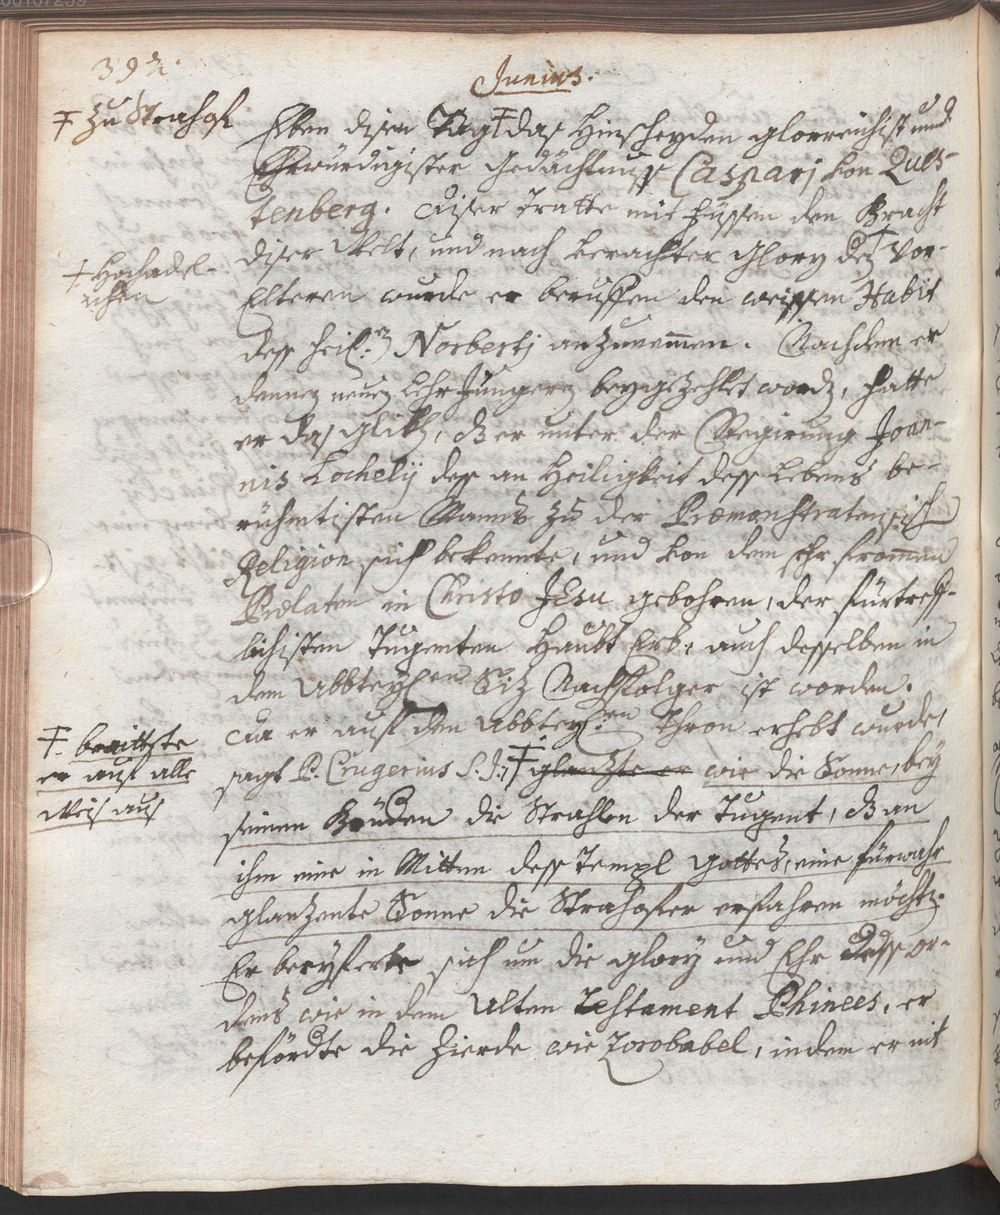 392.
Junius.
‡ Zu Strahof
Eben disen Tag ‡ das Hinscheyden glorreichist und
Ehrwürdigister Gedächtnuss Caspari von Ques-
tenberg. Diser tratte mit Füssen den Bracht
diser Welt, und nach verachter Glory dez † Vor-
† Hochadel-
ichen
Elteren wurde er beruffen den weissen Habit
dess heil: Norberti anzunemmen. Nachdem er
denen neuen Lehr Jüngern beygezehlet word, hatte
er das Glikh, dz er unter der Regirung Joan-
nis Lochelij dess an Heiligkeit dess Lebens be-
rühmtisten Manns zu der Præmonstratensisch
Religion sich bekennte, und von dem sehr frommen
Prælaten in Christo Jesu gebohren, der fürtreff-
lichisten Tugenten Haubt Erb, auch desselben in
dem Abbteylen Siz Nachfolger ist worden.
Da er auf den Abbteyl:en Thron erhebt wurde,
‡ breittete
er auf alle
Weis aus
sagt P. Crugerius S.J.: ‡ glantzte er wie die Sonne, bey
seinen Brüden die Strahlen der Tugent, dz an
ihm eine in Mitten dess Templ Gottes, eine fürwahr
glanzente Sonne die Strahofer erfahren möchte.
Er beeyferte sich um die Glory und Ehr dess Or-
dens wie in dem Alten Testament Phinees, er
befördte die Zierde wie Zorobabel, indem er mit